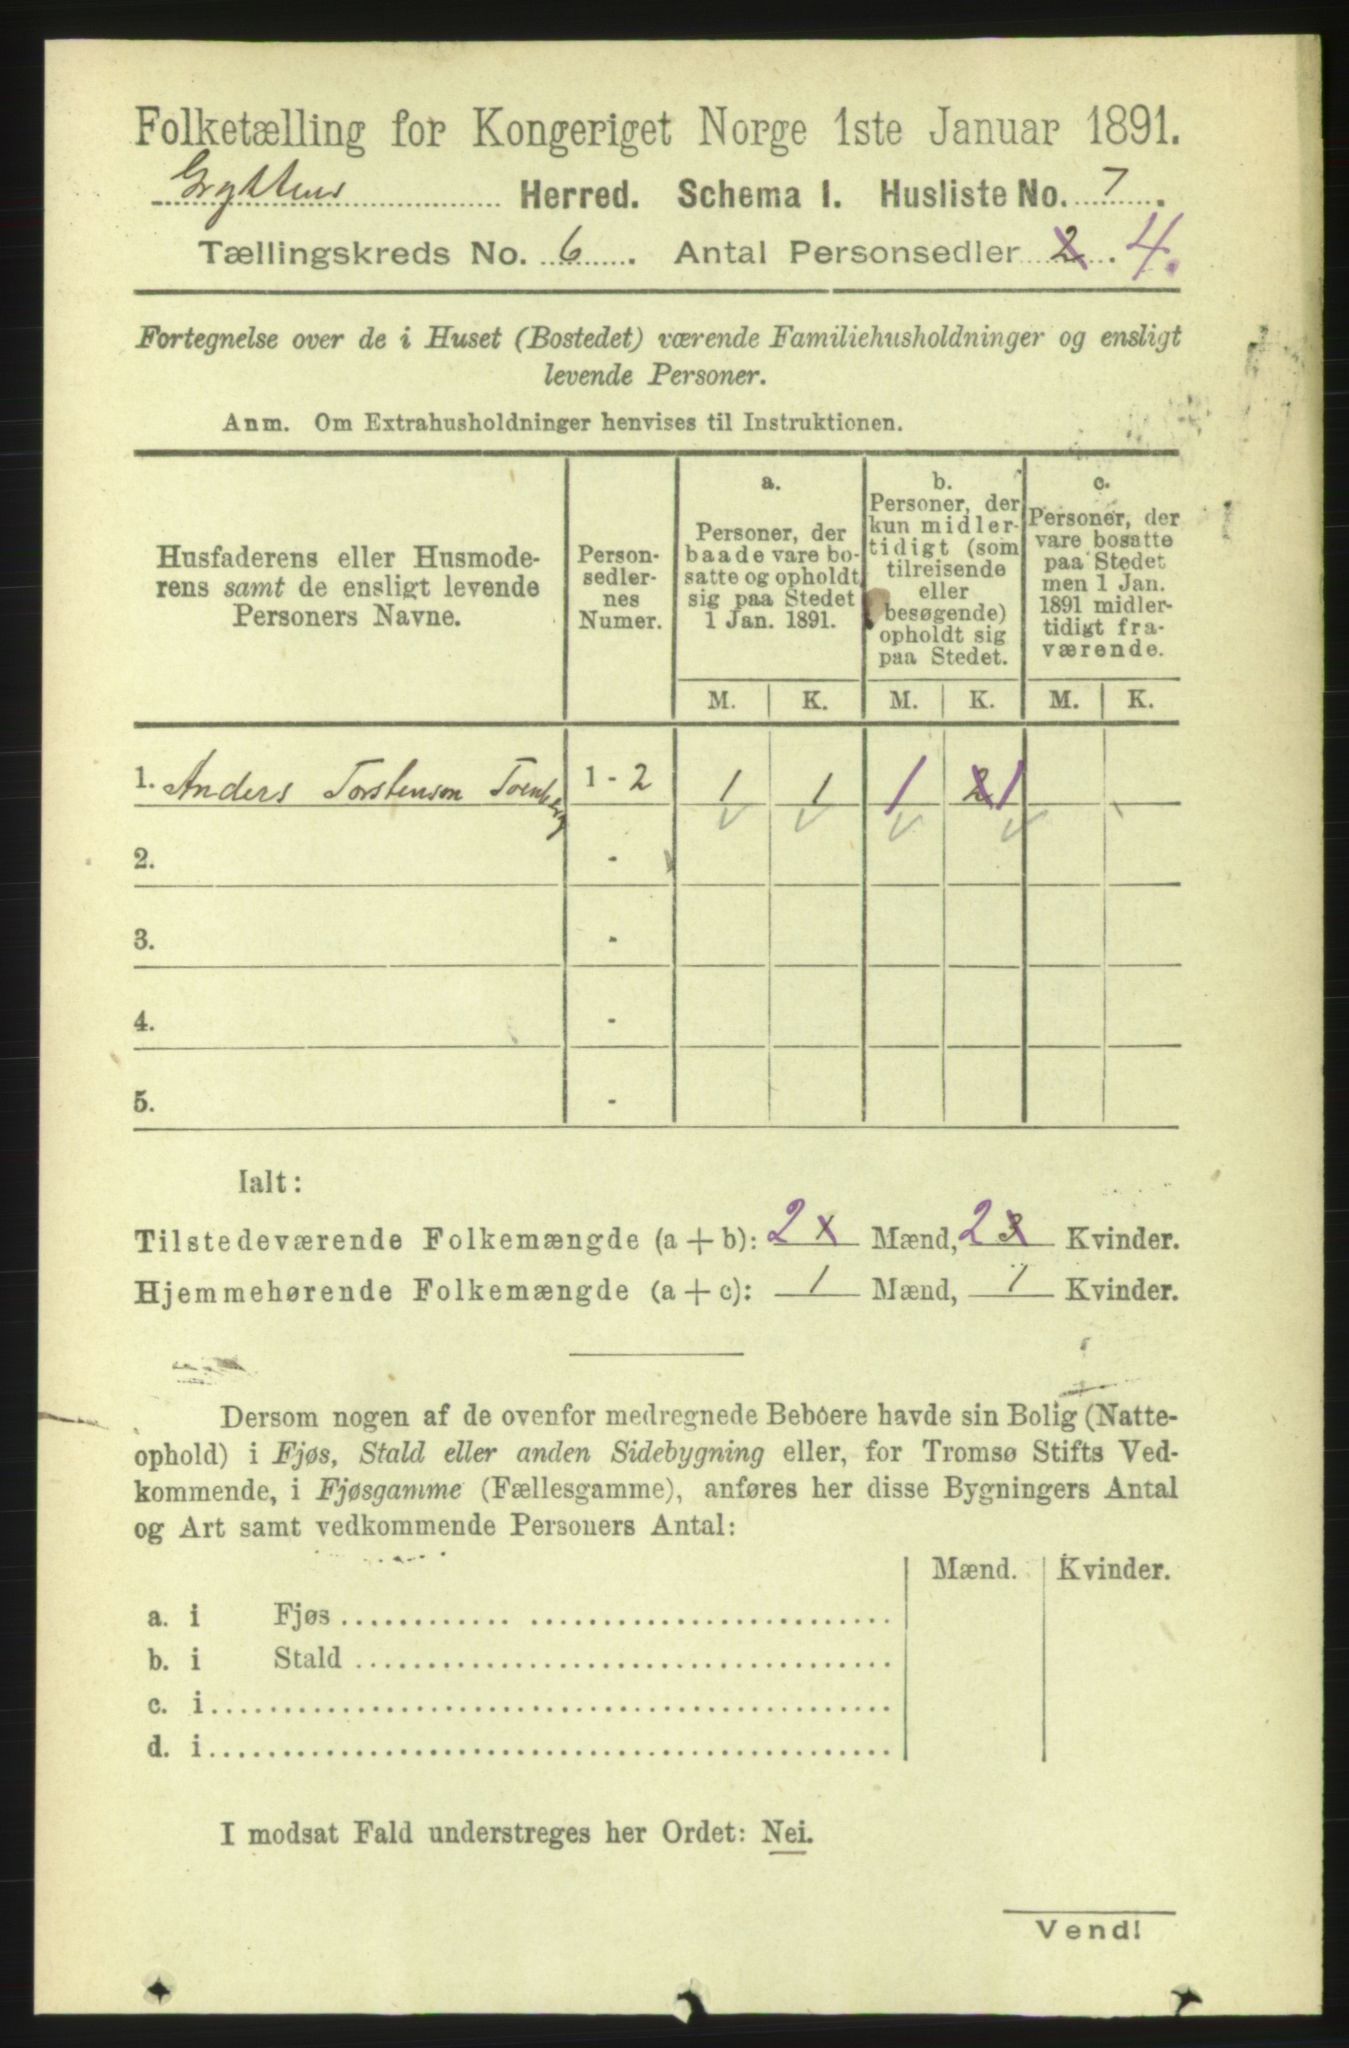 Folketælling for Kongeriget Norge 1ste Januar 1891.
Gryttens Herred. Schema I. Husliste No. 7.
Tællingskreds No. 6. Antal Personsedler 2. 4.
Fortegnelse over de i Huset (Bostedet) værende Familiehusholdninger og ensligt
levende Personer.
Anm. Om Extrahusholdninger henvises til Instruktionen.
Husfaderens eller Husmode-
rens samt de ensligt levende
Personers Navne.
Person-
sedler-
nes
Numer.
a.
Personer, der
baade vare bo-
satte og opholdt
sig paa Stedet
1 Jan. 1891.
b.
Personer, der
kun midler-
tidigt (som
tilreisende
eller
besøgende)
opholdt sig
paa Stedet.
c.
Personer, der
vare bosatte
paa Stedet
men 1 Jan.
1891 midler-
tidigt fra-
værende.
M. K. M. K. M. K.
1. Anders Torstenson 1 - 2 1 1 1 2 1
2. -
3. -
4. -
5. -
Ialt:
Tilstedeværende Folkemængde (a + b): 2 1 Mænd, 2 3 Kvinder.
Hjemmehørende Folkemængde (a + c): 1 Mænd, 1 Kvinder.
Dersom nogen af de ovenfor medregnede Beboere havde sin Bolig (Natte-
ophold) i Fjøs, Stald eller anden Sidebygning eller, for Tromsø Stifts Ved-
kommende, i Fjøsgamme (Fællesgamme), anføres her disse Bygningers Antal
og Art samt vedkommende Personers Antal:
Mænd. Kvinder.
a. i Fjøs
b. i Stald
c. i
d. i
I modsat Fald understreges her Ordet: Nei.
Vend!